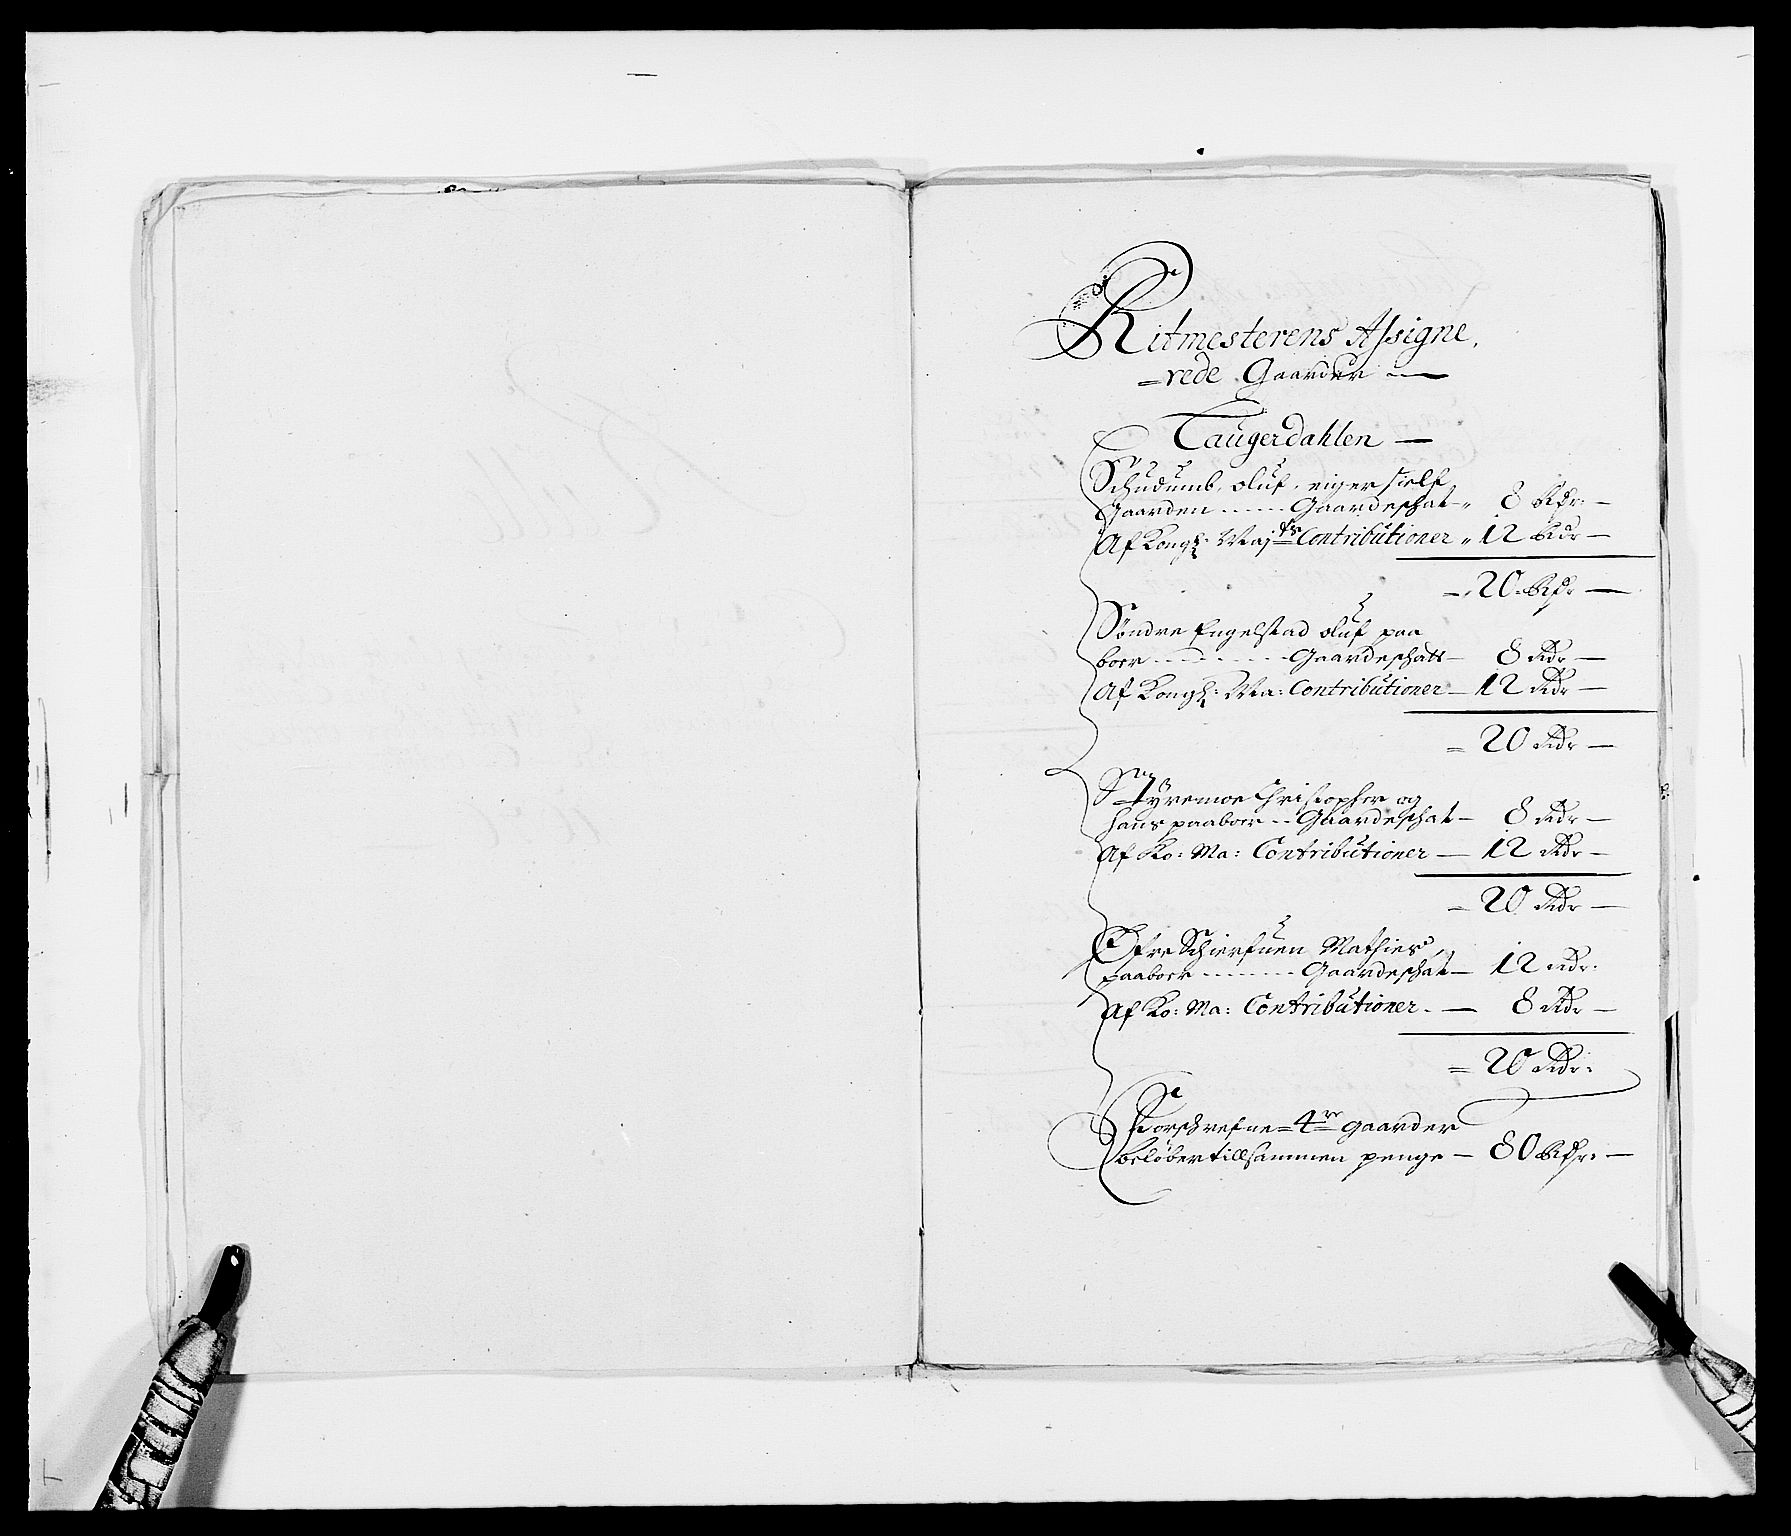 Ritmesterens Assigne,
=rede Gaarder —
Laugerdahlen —
Schudumb, Oluf, eiger sielf
Gaarden ...... Gaardeschat „ 8 Rdr: —
Af Kongl: Maj:ts Contributioner „ 12 Rdr —
= 20 Rdr —
Söndre Engelstad Oluf paa
boer ........ Gaardeschatt — 8 Rdr —
Af Kongl: Ma: Contributioner — 12 Rdr —
= 20 Rdr —
Styremoe Christopher og
Hans paaboer ... Gaardeschat — 8 Rdr —
Af Ko: Ma: Contributioner — 12 Rdr —
= 20 Rdr —
Öfre Schierfuen Mathies,
paaboer ....... Gaardeschat — 12 Rdr:
Af Ko: Ma: Contributioner. — 8 Rdr —
= 20 Rdr:
Forschrefne = 4re gaarder
belöber tillsammen penge — 80 Rdr: —